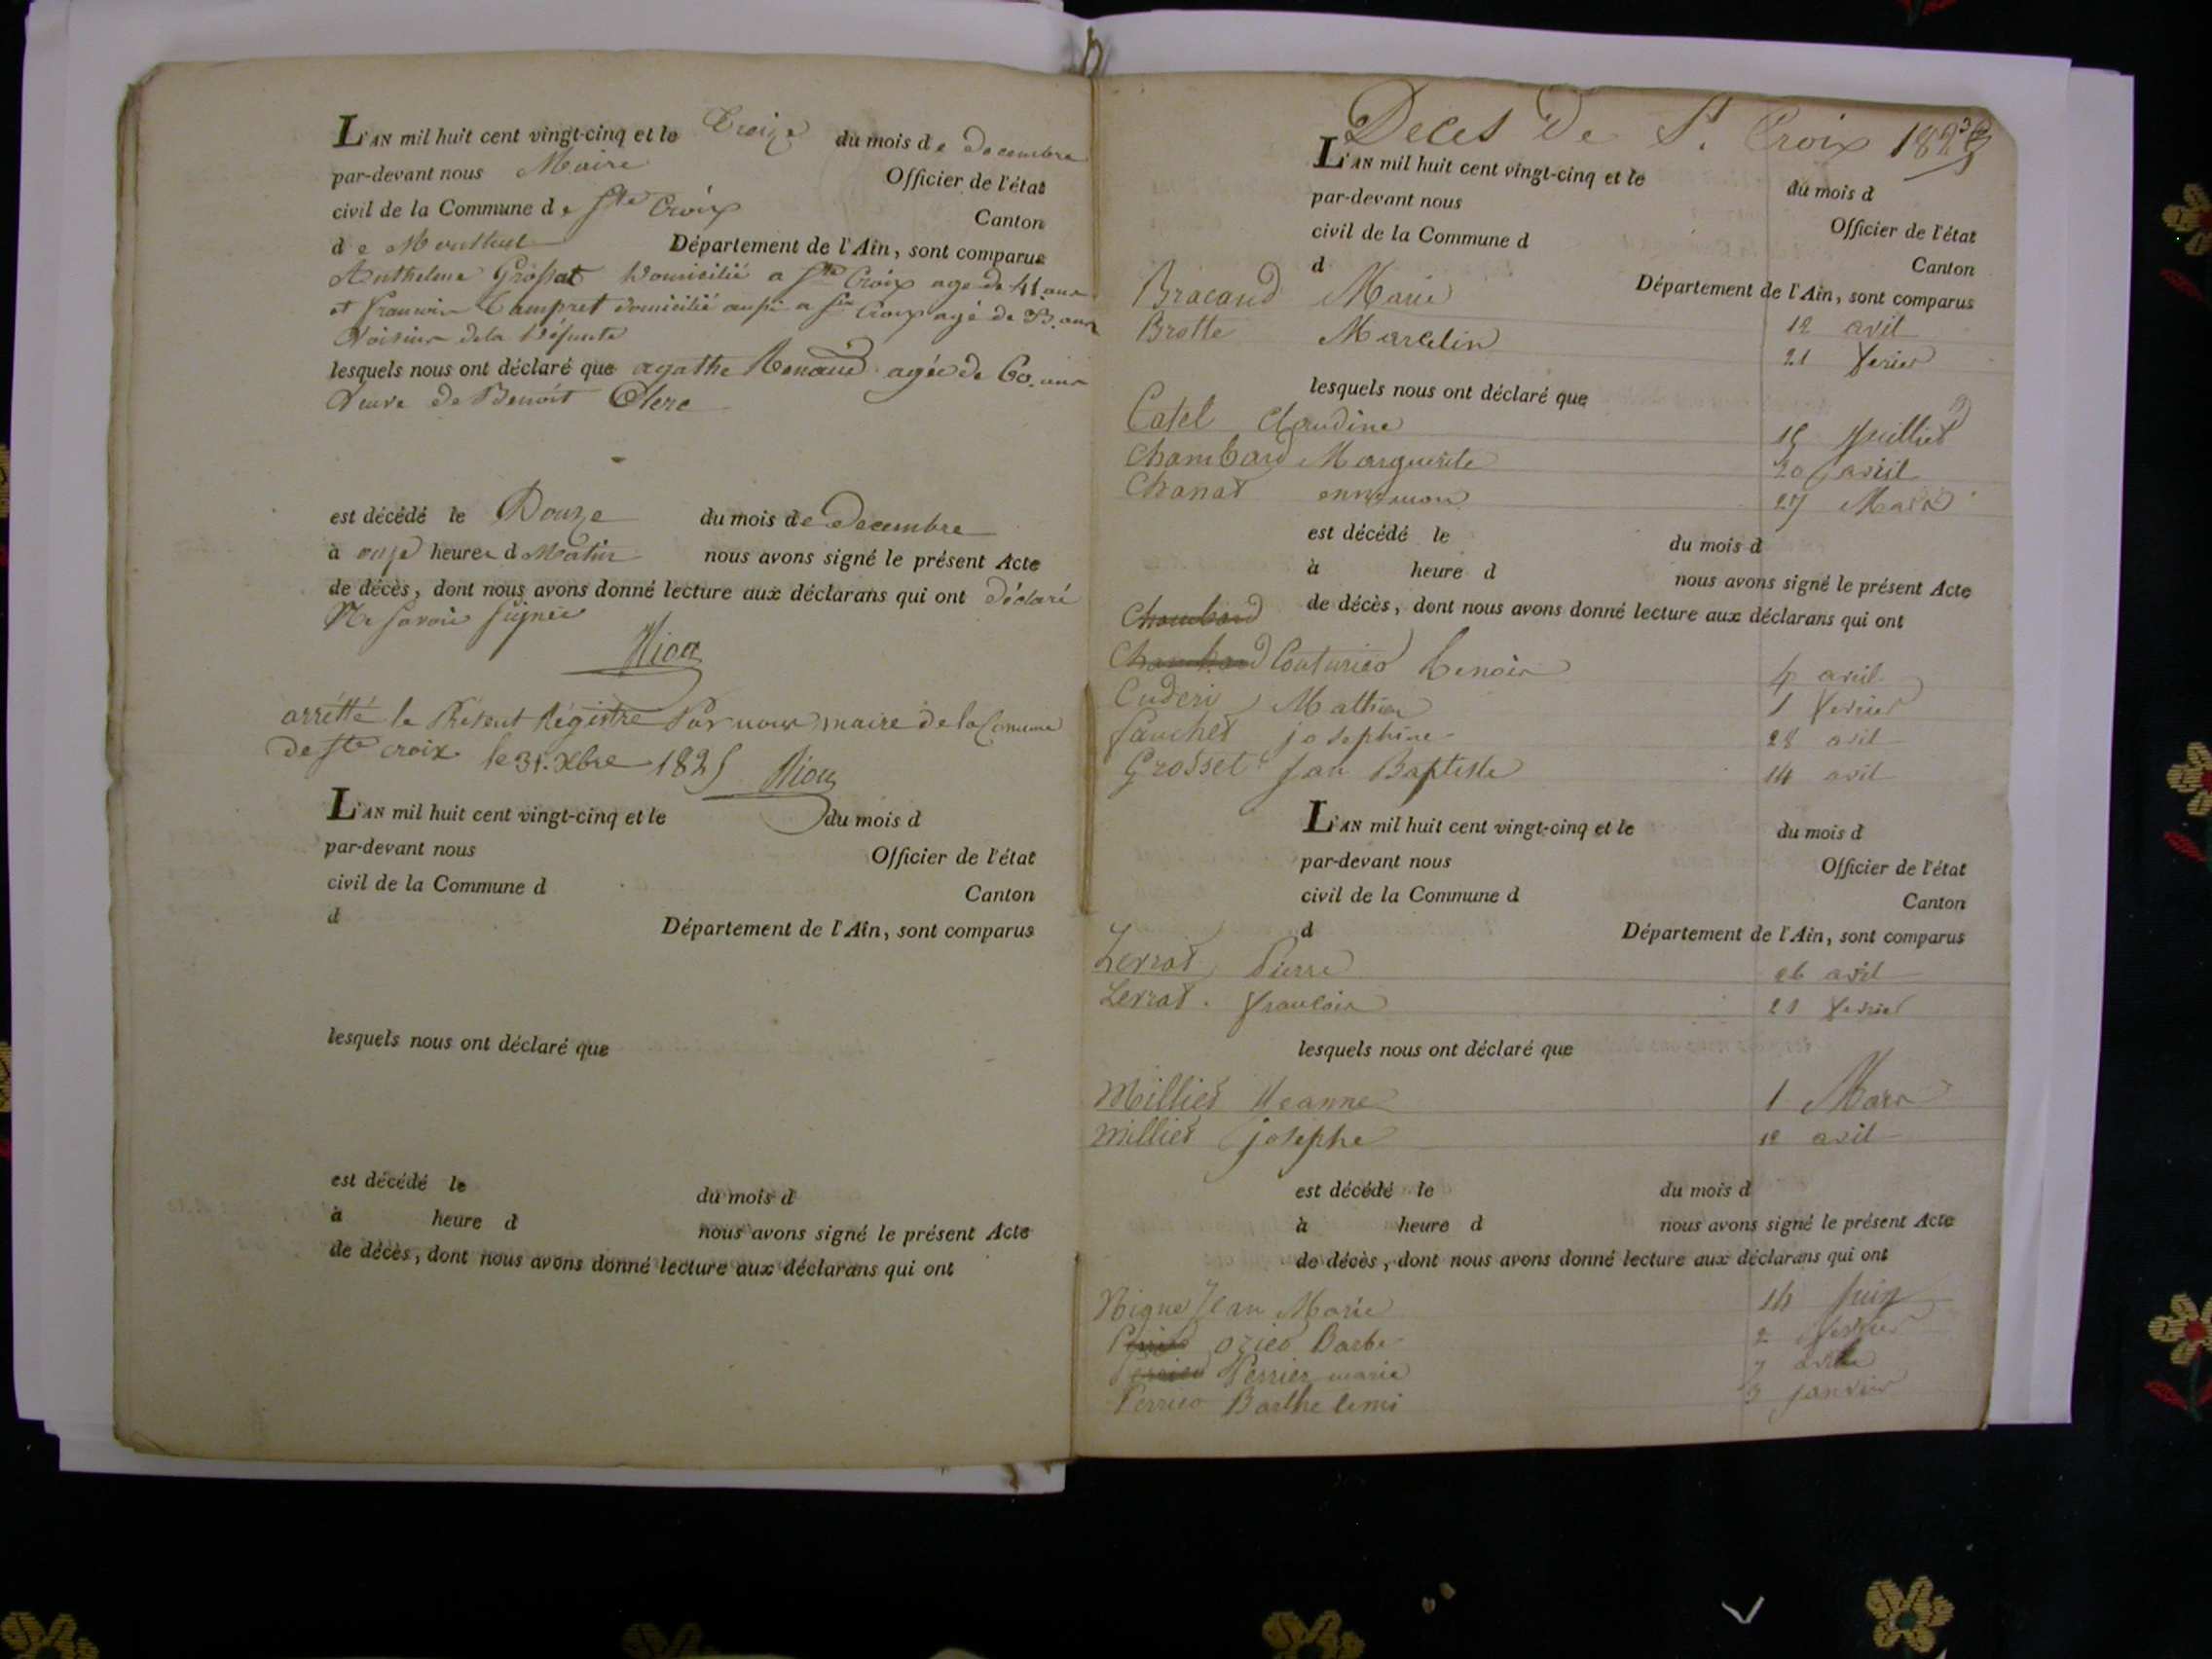 L'AN mil huit cent vingt-cinq et le Treize du mois de Decembre
par-devant nous Maire Officier de l'état
civil de la Commune de Ste Croix Canton
de Montluel Département de l'Ain, sont comparus
Anthelme Grossat Domicilié a Ste Croix agé de 41 ans
et francois Campret domicilié aussi a Ste Croix agé de ans
Voisins dela Défunte
lesquels nous ont déclaré que agathe Renaud agée de 60 ans
Veuve de Benoit Clerc
est décédé le Douze du mois de Decembre
à onze heures d Matin nous avons signé le présent Acte
de décès, dont nous avons donné lecture aux déclarans qui ont déclaré
Ne savoir signer
Niou
arrétté le Présent Régistre Par nous maire de la Comune
de Ste croix le 31. Xbre 1825 Niou
L'AN mil huit cent vingt-cinq et le du mois d
par-devant nous Officier de l'état
civil de la Commune d Canton
d Département de l'Ain, sont comparus
lesquels nous ont déclaré que
est décédé le du mois d
à heure d nous avons signé le présent Acte
de décès, dont nous avons donné lecture aux déclarans qui ont
Deces De St. Croix
L'AN mil huit cent vingt-cinq et le du mois d
par-devant nous Officier de l'état
civil de la Commune d Canton
d Département de l'Ain, sont comparus
Bracand Marie 12 avil
Brotte Marcelin 21 ferier
lesquels nous ont déclaré que
Catel Claudine 15 Juillet
Chambard Marguerite 20 avril
Chanat ennemon 27 Mars
est décédé le du mois d
à heure d nous avons signé le présent Acte
de décès, dont nous avons donné lecture aux déclarans qui ont
Chambard
Chambard Couturier benoir 4 avril
Cuderi Mathieu 1 fevrier
fauchet josephine 28 avil
Grosset Jan Baptiste 14 avil
L'AN mil huit cent vingt-cinq et le du mois d
par-devant nous Officier de l'état
civil de la Commune d Canton
d Département de l'Ain, sont comparus
Lerrat Pierre 26 avil
Lerrat. francois 21 fevrier
lesquels nous ont déclaré que
Millied Jeanne 1 Mars
millied josephe 12 avil
est décédé le du mois d
à heure d nous avons signé le présent Acte
de décès, dont nous avons donné lecture aux déclarans qui ont
Nigue Jean Marie 14 Juin
ozier Barbe 2 fevrier
Perrier marie 7
Perrier Barthelemi janvier